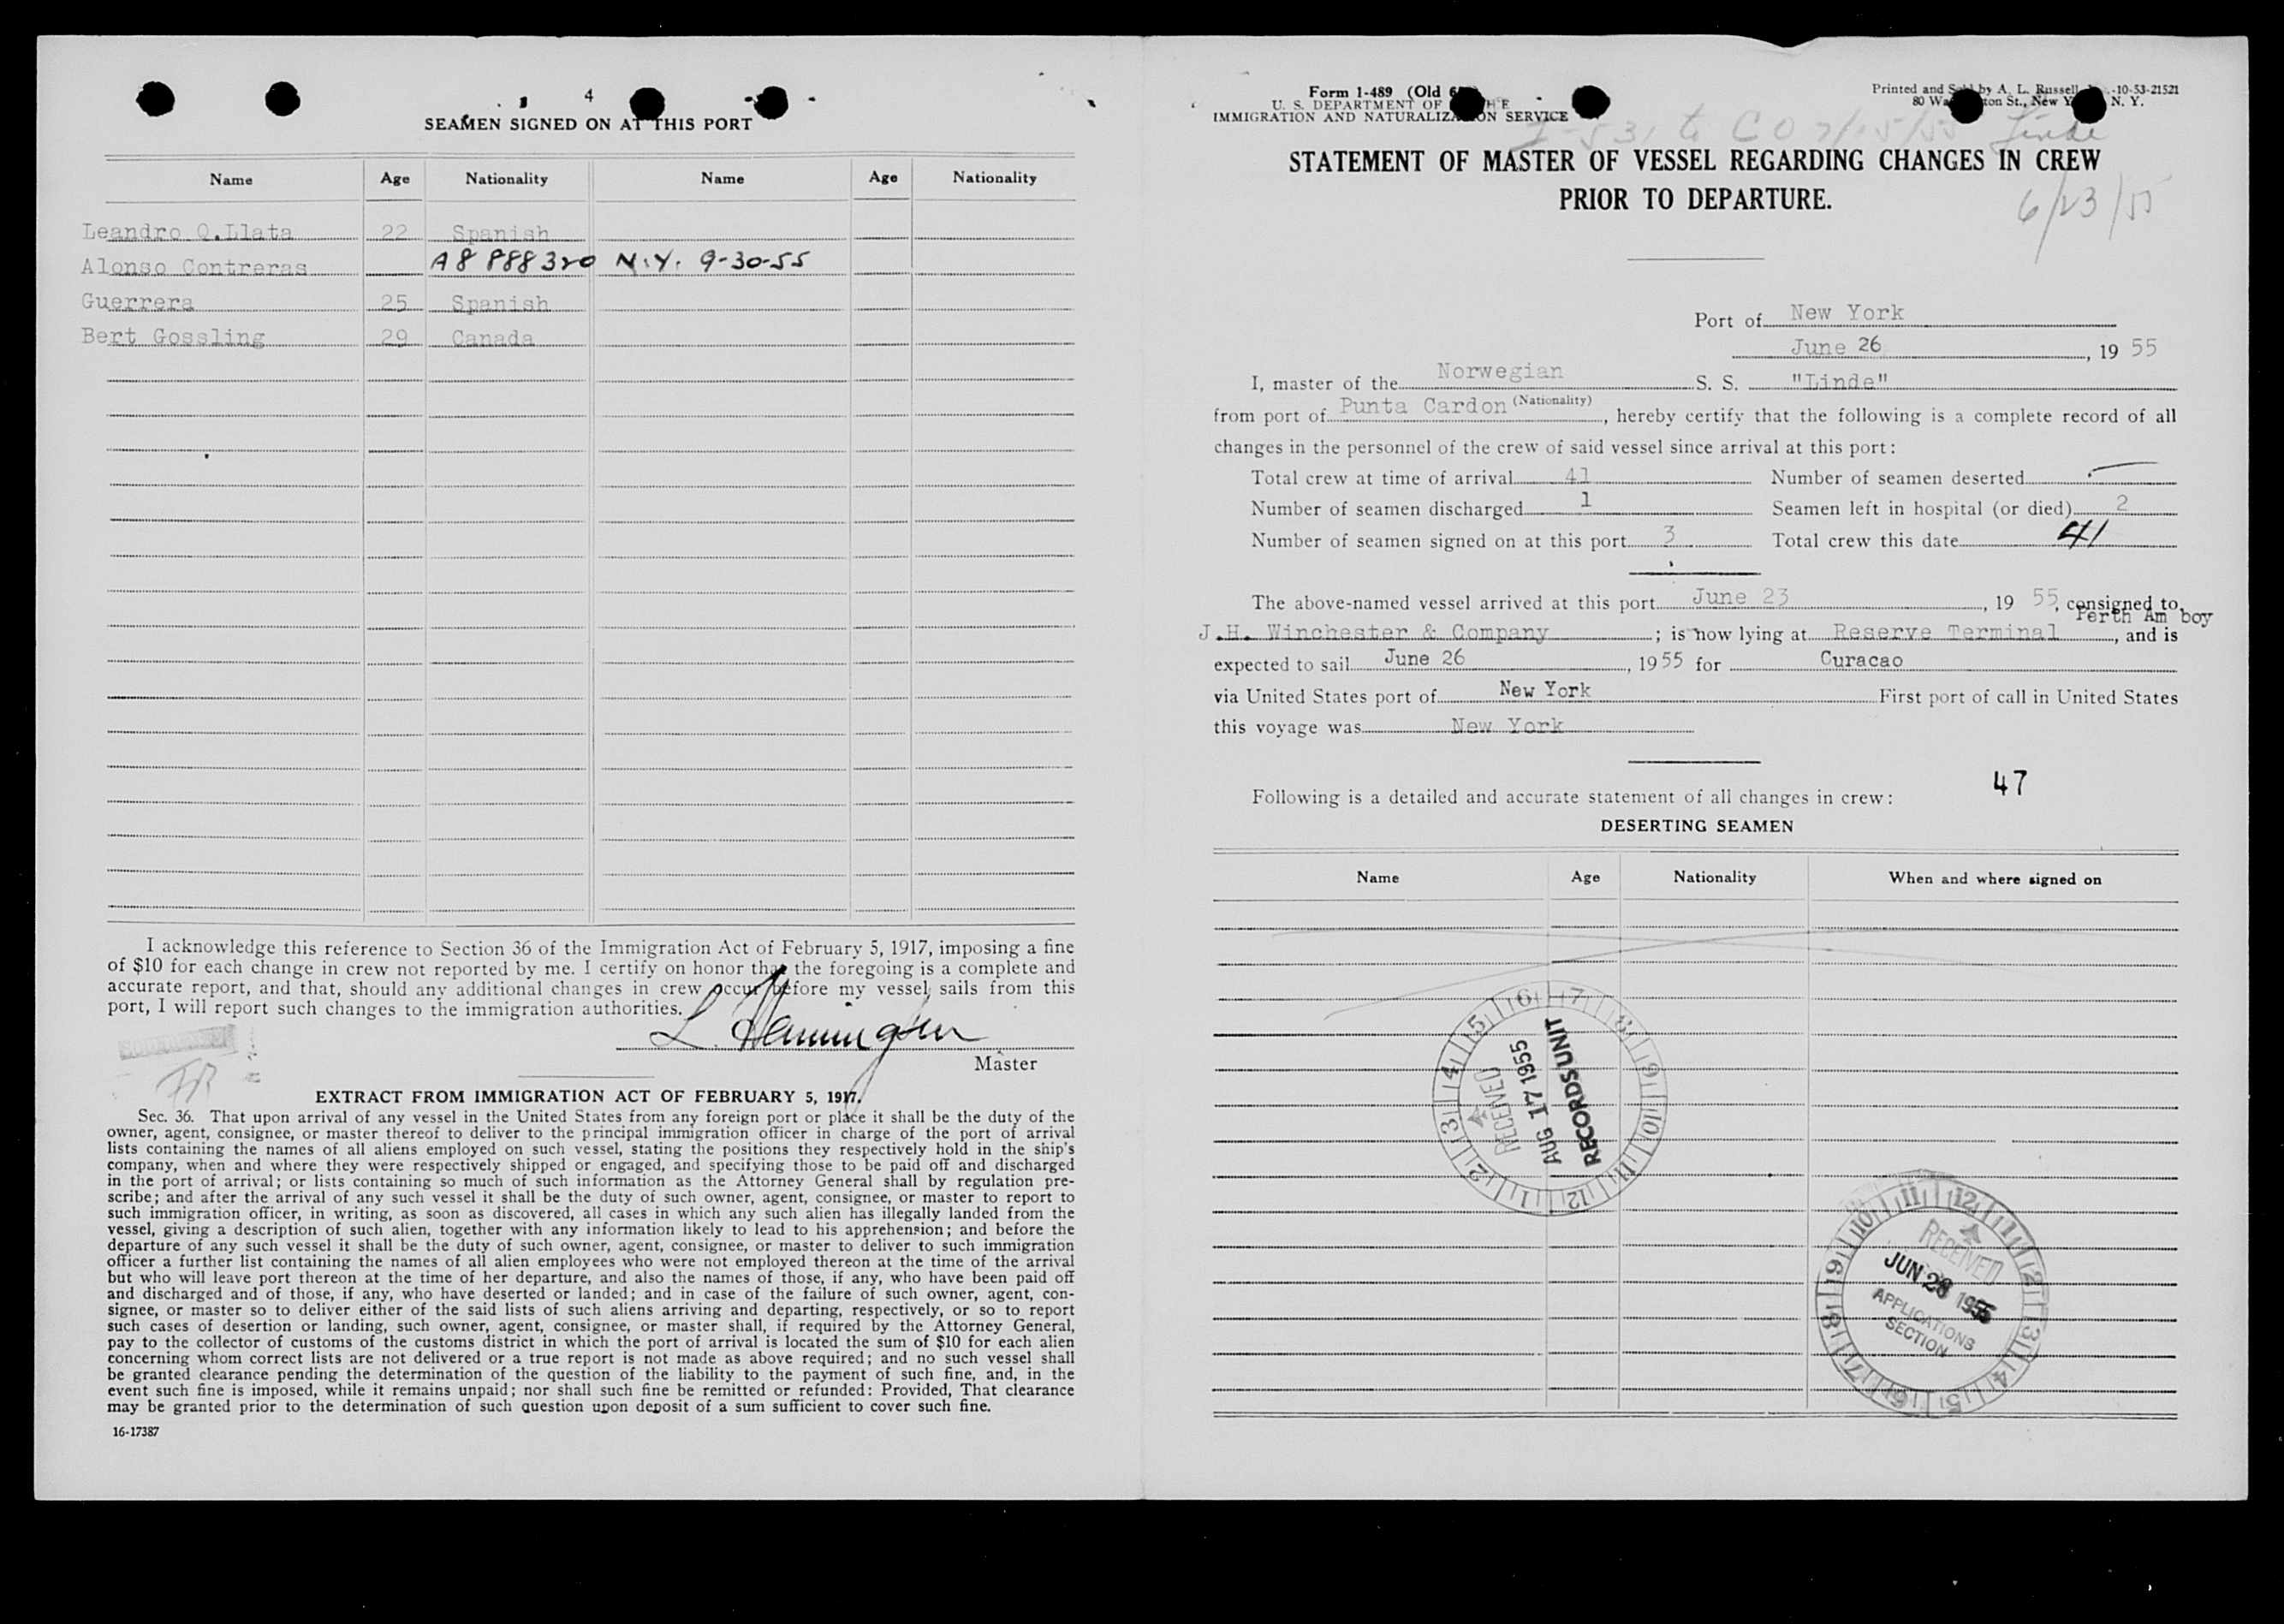 4
SEAMEN SIGNED ON AT THIS PORT
Name Age Nationality Name Age Nationality
Leandro Q.Llata 22 Spanish
Alonso Contreras A8 888320 N.Y. 9-30-55
Guerrera 25 Spanish
Bert Gossling 29 Canada
I acknowledge this reference to Section 36 of the Immigration Act of February 5, 1917, imposing a fine
of $10 for each change in crew not reported by me. I certify on honor that the foregoing is a complete and
accurate report, and that, should any additional changes in crew occur before my vessel sails from this
port, I will report such changes to the immigration authorities.
Master
EXTRACT FROM IMMIGRATION ACT OF FEBRUARY 5, 1917.
Sec. 36. That upon arrival of any vessel in the United States from any foreign port or place it shall be the duty of the
owner, agent, consignee, or master thereof to deliver to the principal immigration officer in charge of the port of arrival
lists containing the names of all aliens employed on such vessel, stating the positions they respectively hold in the ship's
company, when and where they were respectively shipped or engaged, and specifying those to be paid off and discharged
in the port of arrival; or lists containing so much of such information as the Attorney General shall by regulation pre-
scribe; and after the arrival of any such vessel it shall be the duty of such owner, agent, consignee, or master to report to
such immigration officer, in writing, as soon as discovered, all cases in which any such alien has illegally landed from the
vessel, giving a description of such alien, together with any information likely to lead to his apprehension; and before the
departure of any such vessel it shall be the duty of such owner, agent, consignee, or master to deliver to such immigration
officer a further list containing the names of all alien employees who were not employed thereon at the time of the arrival
but who will leave port thereon at the time of her departure, and also the names of those, if any, who have been paid off
and discharged and of those, if any, who have deserted or landed; and in case of the failure of such owner, agent, con-
signee, or master so to deliver either of the said lists of such aliens arriving and departing, respectively, or so to report
such cases of desertion or landing, such owner, agent, consignee, or master shall, if required by the Attorney General,
pay to the collector of customs of the customs district in which the port of arrival is located the sum of $10 for each alien
concerning whom correct lists are not delivered or a true report is not made as above required; and no such vessel shall
be granted clearance pending the determination of the question of the liability to the payment of such fine, and, in the
event such fine is imposed, while it remains unpaid; nor shall such fine be remitted or refunded: Provided, That clearance
may be granted prior to the determination of such question upon deposit of a sum sufficient to cover such fine.
16-17387
Form I-489 (Old
U. S. DEPARTMENT OF
IMMIGRATION AND NATURALIZATION SERVICE
Printed and Sold by A. L. Russell -10-53-21521
80 St., New Y N. Y.
I-531 to CO 7/15/55 Linde
STATEMENT OF MASTER OF VESSEL REGARDING CHANGES IN CREW
PRIOR TO DEPARTURE.
6/23/55
Port of New York
June 26, 19 55
I, master of the Norwegian S. S. "Linde"
(Nationality)
from port of Punta Cardon, hereby certify that the following is a complete record of all
changes in the personnel of the crew of said vessel since arrival at this port:
Total crew at time of arrival 41 Number of seamen deserted -
Number of seamen discharged 1 Seamen left in hospital (or died) 2
Number of seamen signed on at this port 3 Total crew this date 41
The above-named vessel arrived at this port June 23, 19 55, consigned to
J.H. Winchester & Company; is now lying at Reserve Terminal Perth Amboy, and is
expected to sail June 26, 1955 for Curacao
via United States port of New York First port of call in United States
this voyage was New York
47
Following is a detailed and accurate statement of all changes in crew:
DESERTING SEAMEN
Name Age Nationality When and where signed on
RECEIVED
AUG 17 1955
RECORDS UNIT
1 2 3 4 5 6 7 8 9 10 11 12
RECEIVED
JUN 28 1955
APPLICATIONS
SECTION
1 2 3 4 5 6 7 8 9 10 11 12